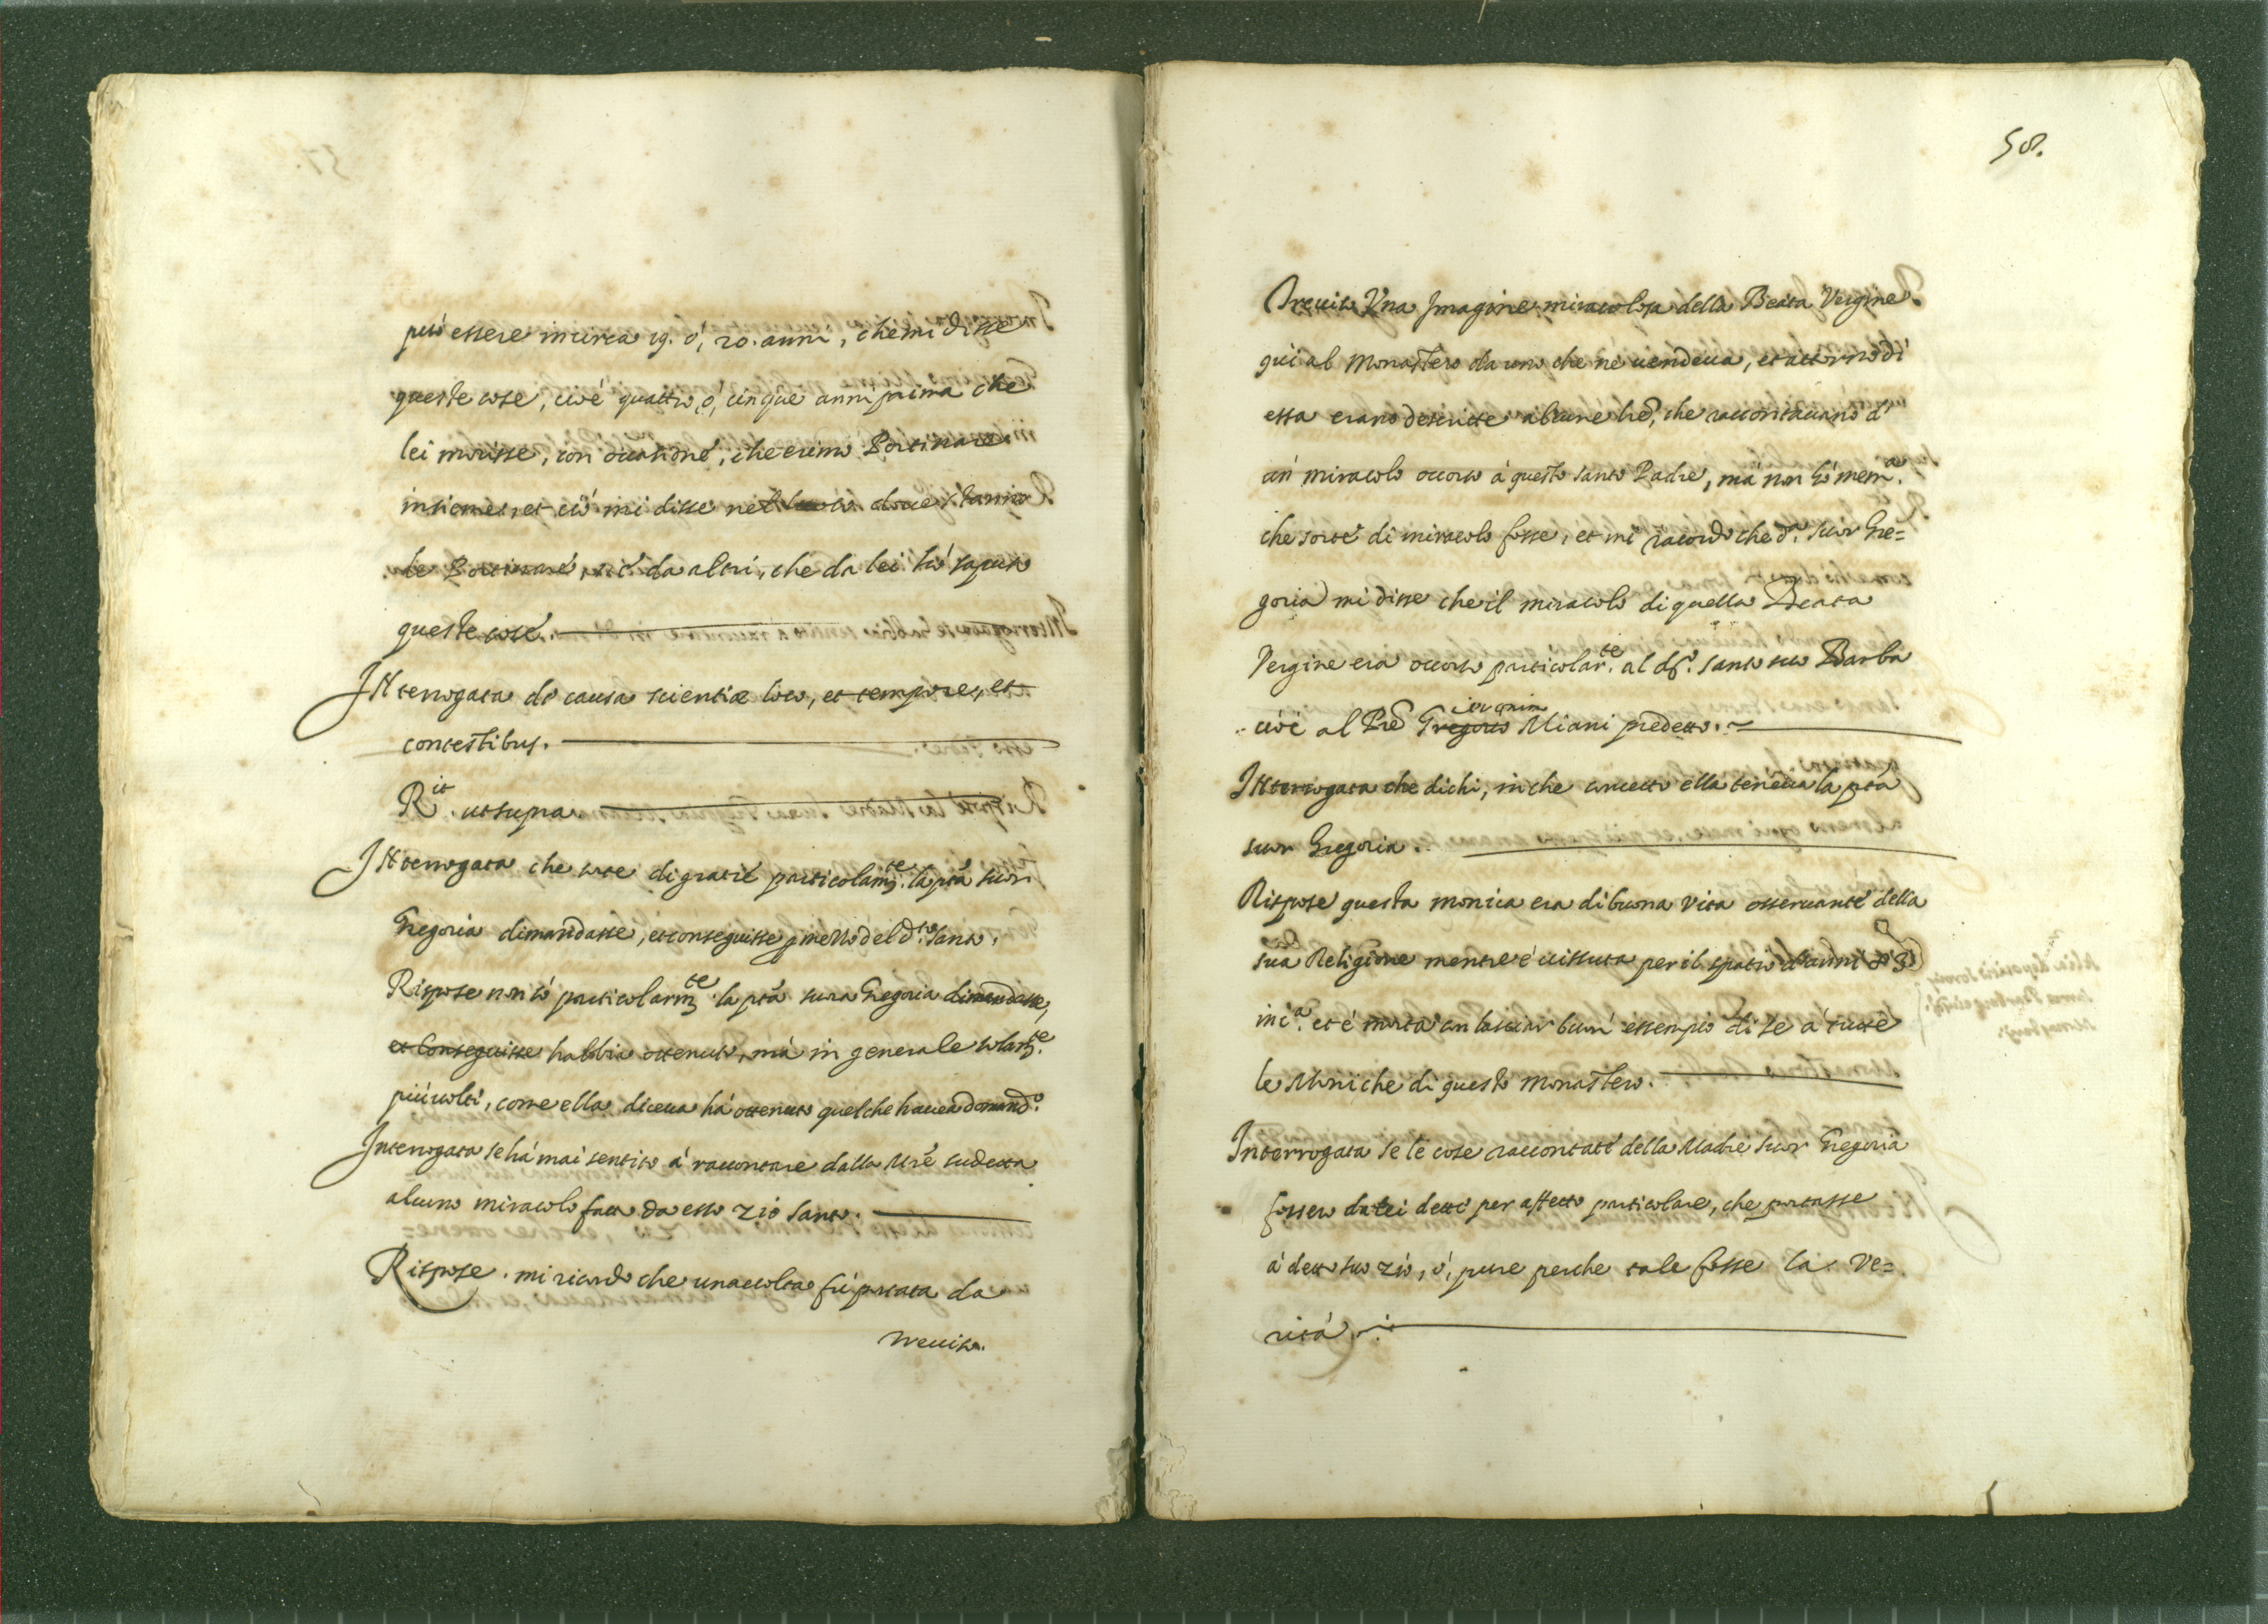 può essere incirca 19. ò, 20. anni, che mi disse
queste cose, cioè quattro, ò, cinque anni prima che
lei morisse, con occasione, che erimo Portinare
insieme, et ciò mi disse nel loco doue stanno
le Portinare, nè da altri, che da lei hò saputo
queste cose.
Interrogata de causa scientiæ loco, et tempore, et
contestibus.
R.it ut supra
Interrogata che sorte di gratie particolarm.te la pta suor
Gregoria dimandasse, et conseguisse p mezzo del d.to santo.
Rispose non sò particolarm.te la pta suora Gregoria dimandasse,
et Conseguisse habbia ottenuto, mà in generale solam.te
più uolte, come ella diceua hà ottenuto quel che hauea domand.o
Interrogata se hà mai sentito à raccontare dalla Mre sudetta
alcuno miracolo fatto da esso zio santo.
Rispose. mi ricordo che una uolta fù portata da
Treuiso.
58.
Treuiso Vna Imagine miracolosa della Beata Vergine
quì al Monastero da uno che ne uendeua, et attorno di
essa erano descritte alcune lre, che raccontauano d'
un miracolo occorso à questo santo Padre, mà non hò mem.a
che sorte di miracolo fosse, et mi racordo che d.a suor Gre=
goria mi disse che il miracolo di quella Beata
Vergine era occorso particolar.te al d.o santo suo Barba
cioè al Pre Gregorio Ieronim Miani predetto.
Interrogata che dichi, in che concetto ella teneua la pta
suor Gregoria.
Rispose questa monica era di buona vita osseruante della
sua Religione mentre è uissuta per il spatio d'anni 83
inc.a et è morta con lasciar buon essempio di se à tutte
le Moniche di questo Monastero.
Interrogata se le cose raccontate della Madre suor Gregoria
fossero da lei dette per affetto particolare, che portasse
à detto suo zio, ò, pure perche tale fosse la Ve=
rità